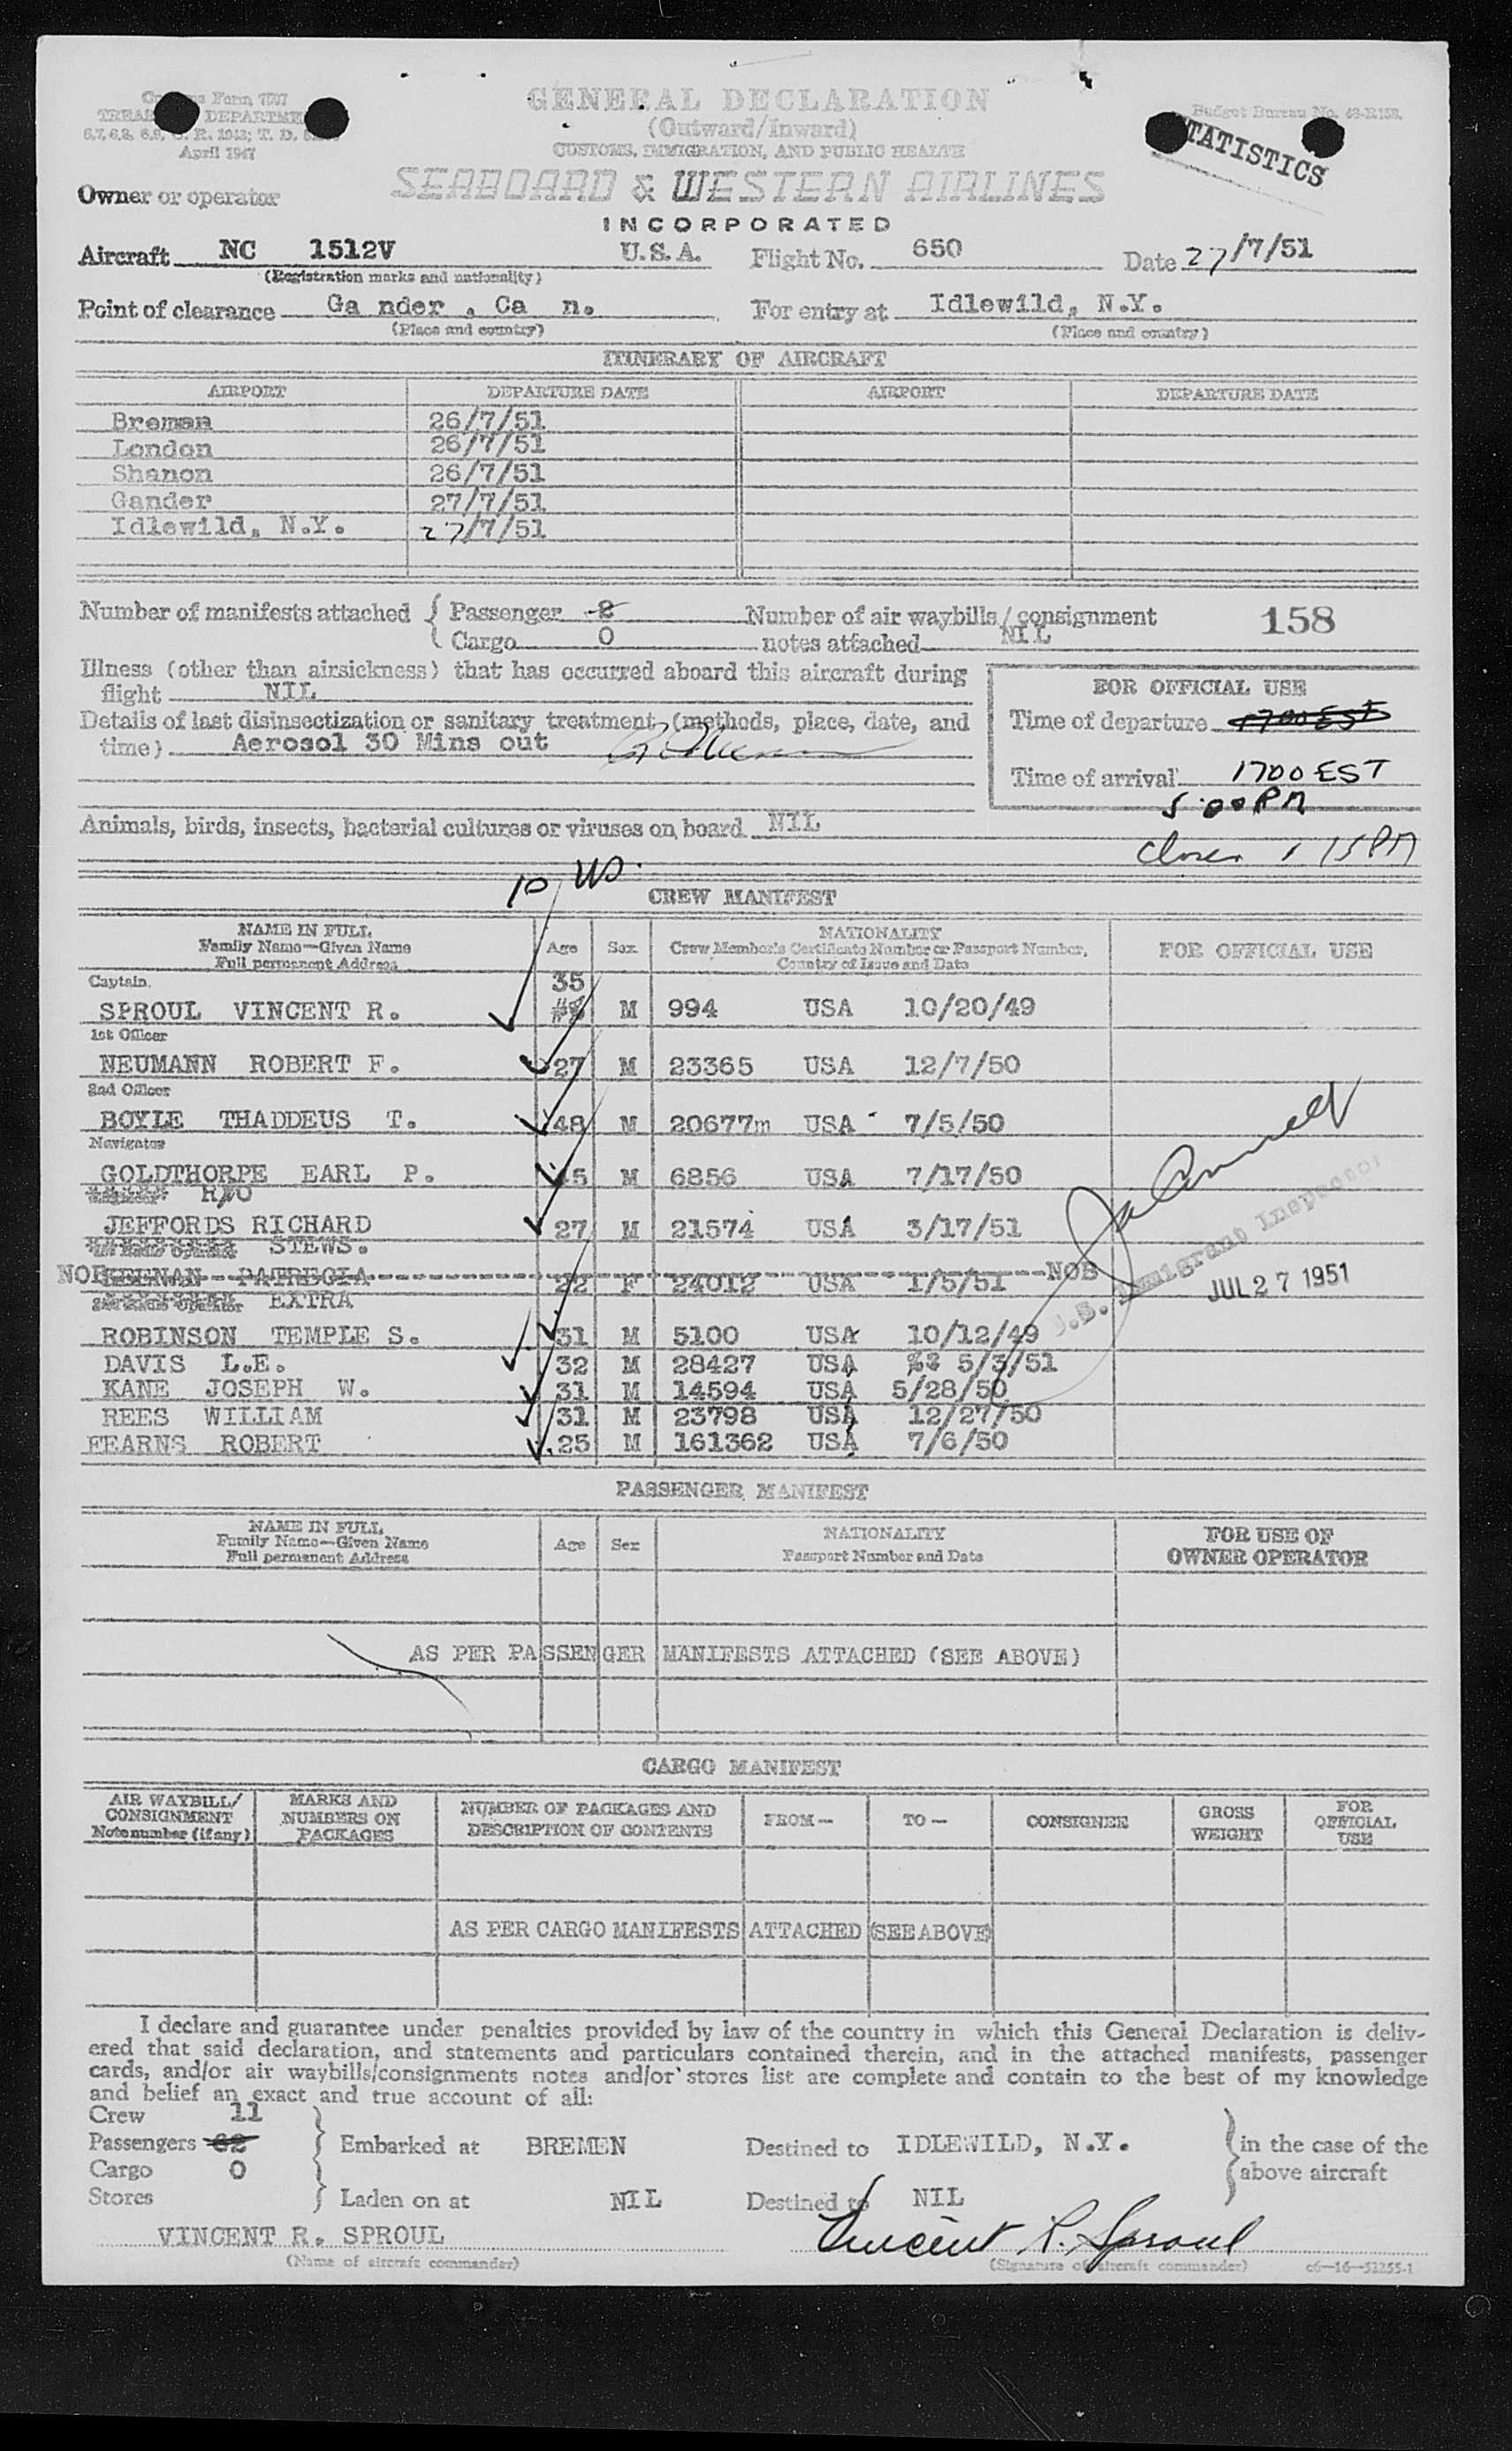 Customs Form 7507
TREASURY DEPARTMENT
April 1947
GENERAL DECLARATION
(Outward/Inward)
CUSTOMS, IMMIGRATION, AND PUBLIC HEALTH
Budget Bureau No. 48-R158.
STATISTICS
Owner or operator SEABOARD & WESTERN AIRLINES
INCORPORATED
Aircraft NC 1512V U.S.A. Flight No. 650 Date 27/7/51
(Registration marks and nationality)
Point of clearance Ga nder , Ca n. For entry at Idlewild, N.Y.
(Place and country) (Place and country)
ITINERARY OF AIRCRAFT
AIRPORT DEPARTURE DATE AIRPORT DEPARTURE DATE
Bremen 26/7/51
London 26/7/51
Shanon 26/7/51
Gander 27/7/51
Idlewild, N.Y. 27/7/51
Number of manifests attached { Passenger 2 Number of air waybills/consignment 158
Cargo 0 notes attached NIL
Illness (other than airsickness) that has occurred aboard this aircraft during
flight NIL
FOR OFFICIAL USE
Details of last disinsectization or sanitary treatment (methods, place, date, and
time) Aerosol 30 Mins out
Time of departure 1700 EST
Time of arrival 1700 EST
5:00 PM
Animals, birds, insects, bacterial cultures or viruses on board NIL
10 US.
CREW MANIFEST
NAME IN FULL
Family Name—Given Name
Full permanent Address
Age Sex
NATIONALITY
Crew Member's Certificate Number or Passport Number,
Country of Issue and Date
FOR OFFICIAL USE
Captain 35
SPROUL VINCENT R. M 994 USA 10/20/49
1st Officer
NEUMANN ROBERT F. 27 M 23365 USA 12/7/50
2nd Officer
BOYLE THADDEUS T. 48 M 20677m USA 7/5/50
Navigator
GOLDTHORPE EARL P. 45 M 6856 USA 7/17/50
R/O
JEFFORDS RICHARD 27 M 21574 USA 3/17/51
STEWS.
NOB KEENAN PATRECIA 22 F 24012 USA 1/5/51 NOB
EXTRA
U.S. Immigrant Inspector
JUL 27 1951
ROBINSON TEMPLE S. 31 M 5100 USA 10/12/49
DAVIS L.E. 32 M 28427 USA 5/3/51
KANE JOSEPH W. 31 M 14594 USA 5/28/50
REES WILLIAM 31 M 23798 USA 12/27/50
FEARNS ROBERT 25 M 161362 USA 7/6/50
PASSENGER MANIFEST
NAME IN FULL
Family Name—Given Name
Full permanent Address
Age Sex
NATIONALITY
Passport Number and Date
FOR USE OF
OWNER OPERATOR
AS PER PASSENGER MANIFESTS ATTACHED (SEE ABOVE)
CARGO MANIFEST
AIR WAYBILL/
CONSIGNMENT
Note number (if any)
MARKS AND
NUMBERS ON
PACKAGES
NUMBER OF PACKAGES AND
DESCRIPTION OF CONTENTS
FROM— TO— CONSIGNEE
GROSS
WEIGHT
FOR
OFFICIAL
USE
AS PER CARGO MANIFESTS ATTACHED (SEE ABOVE)
I declare and guarantee under penalties provided by law of the country in which this General Declaration is deliv-
ered that said declaration, and statements and particulars contained therein, and in the attached manifests, passenger
cards, and/or air waybills/consignments notes and/or stores list are complete and contain to the best of my knowledge
and belief an exact and true account of all:
Crew 11
Passengers 62 Embarked at BREMEN Destined to IDLEWILD, N.Y. in the case of the
Cargo 0 above aircraft
Stores Laden on at NIL Destined to NIL
VINCENT R. SPROUL Vincent R. Sproul
(Name of aircraft commander) (Signature of aircraft commander) c6—16—51255-1